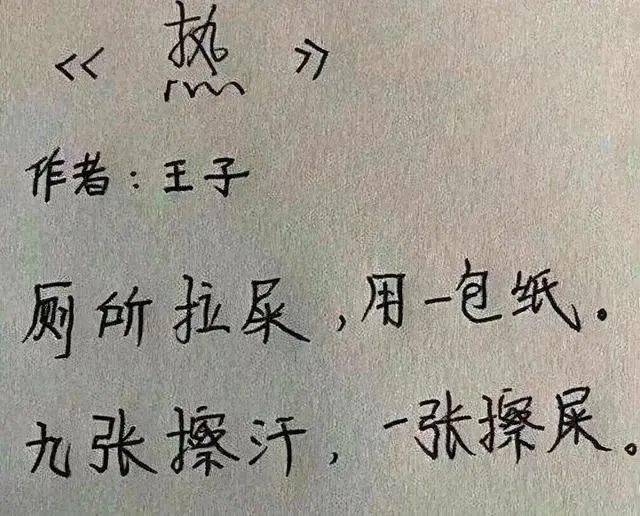 《 热 》
作者:王子
厕所拉屎,用一包纸。
九张擦汗,一张擦屎。